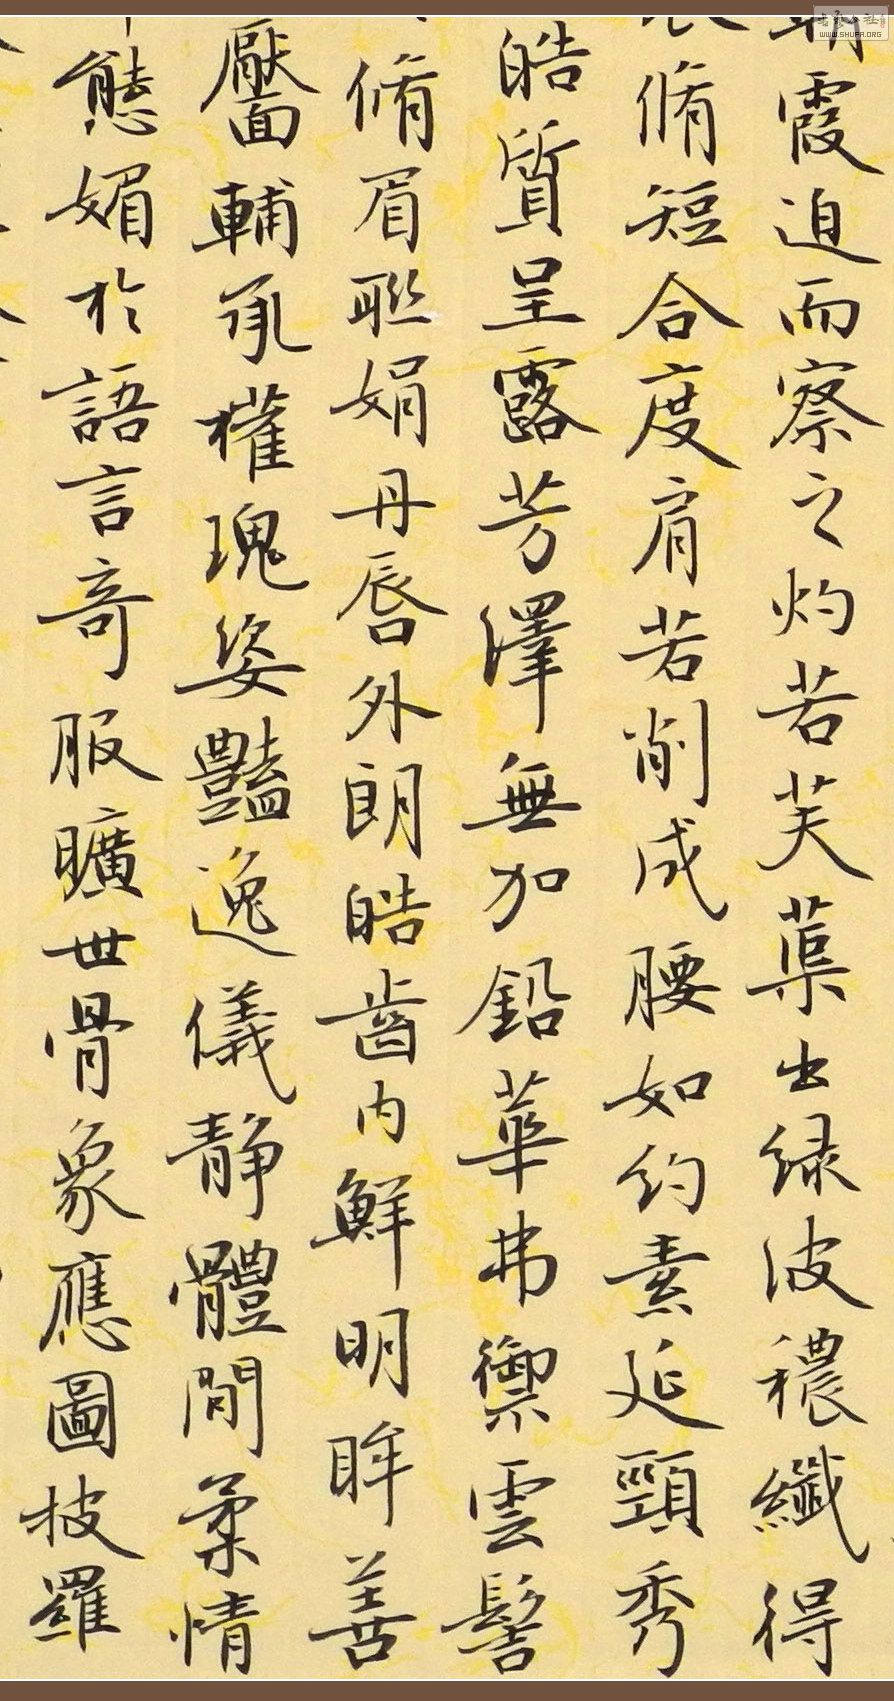 朝霞迫而察之灼若芙蕖出緑波穠纖得
脩短合度肩若削成腰如約素延頸秀
皓質呈露芳澤無加鉛華弗禦雲髻
脩眉聯娟丹唇外朗皓齒内鮮明眸善
靨輔承權瑰姿豔逸儀静體閒柔情
態媚於語言奇服曠世骨象應圖披羅
WWW.SHUFA.ORG